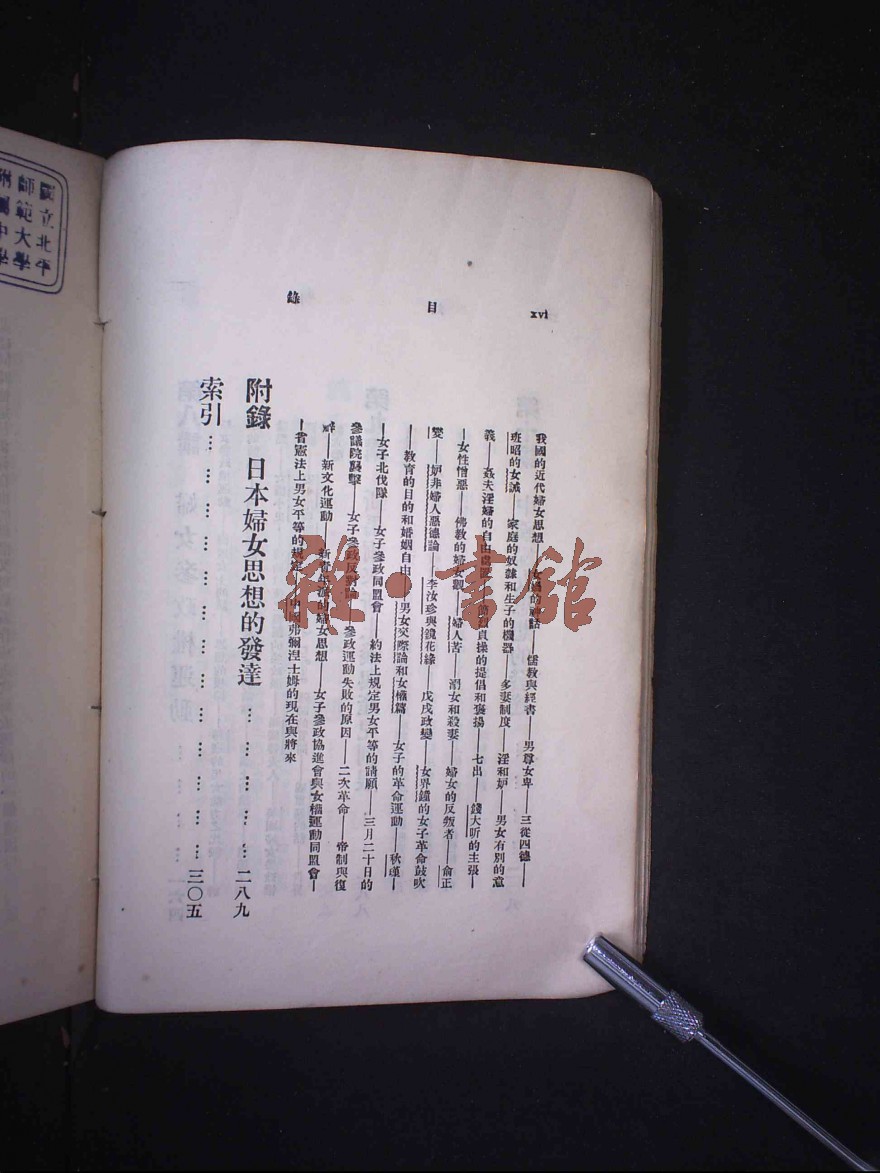 國立北平
師範大學
附屬中學
xvi
目錄
我國的近代婦女思想——女媧的神話——儒教與經書——男尊女卑——三從四德——
班昭的女誡——家庭的奴隸和生子的機器——多妻制度——淫和妒——男女有別的意
義——姦夫淫婦的自由處置——節烈貞操的提倡和褒揚——七出——錢大昕的主張——
——女性憎惡——佛教的婦女觀——婦人苦——溺女和殺妻——婦女的反叛者——俞正
燮——妒非婦人惡德論——李汝珍與鏡花緣——戊戌政變——女界鐘的女子革命鼓吹
——教育的目的和婚姻自由——男女交際論和女權篇——女子的革命運動——秋瑾——
——女子北伐隊——女子參政同盟會——約法上規定男女平等的請願——三月二十日的
參議院襲擊——女子參政反對論——參政運動失敗的原因——二次革命——帝制與復
辟——新文化運動——新青年派的婦女思想——女子參政協進會與女權運動同盟會——
——省憲法上男女平等的規定——中國弗彌涅士姆的現在與將來
附錄 日本婦女思想的發達………………二八九
索引………………………………………三〇五
雜·書館